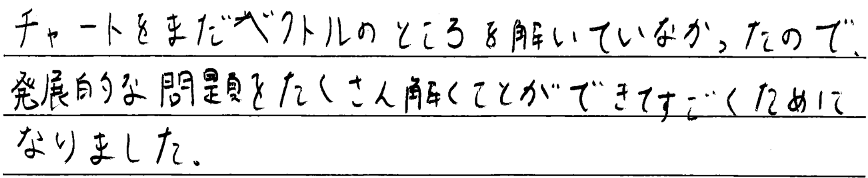 チャートをまだベクトルのところを解いていなかったので、
発展的な問題をたくさん解くことができてすごくために
なりました。